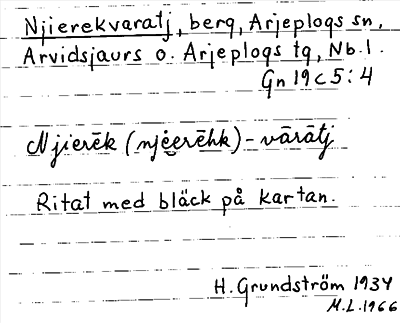 Njierekvaratj, berg, Arjeplogs sn,
Arvidsjaurs o. Arjeplogs tg, Nb.l.
Gn 19 c 5:4
Njierēk (njėerēhk)-vārātj
Ritat med bläck på kartan.
H. Grundström 1934
M.L. 1966